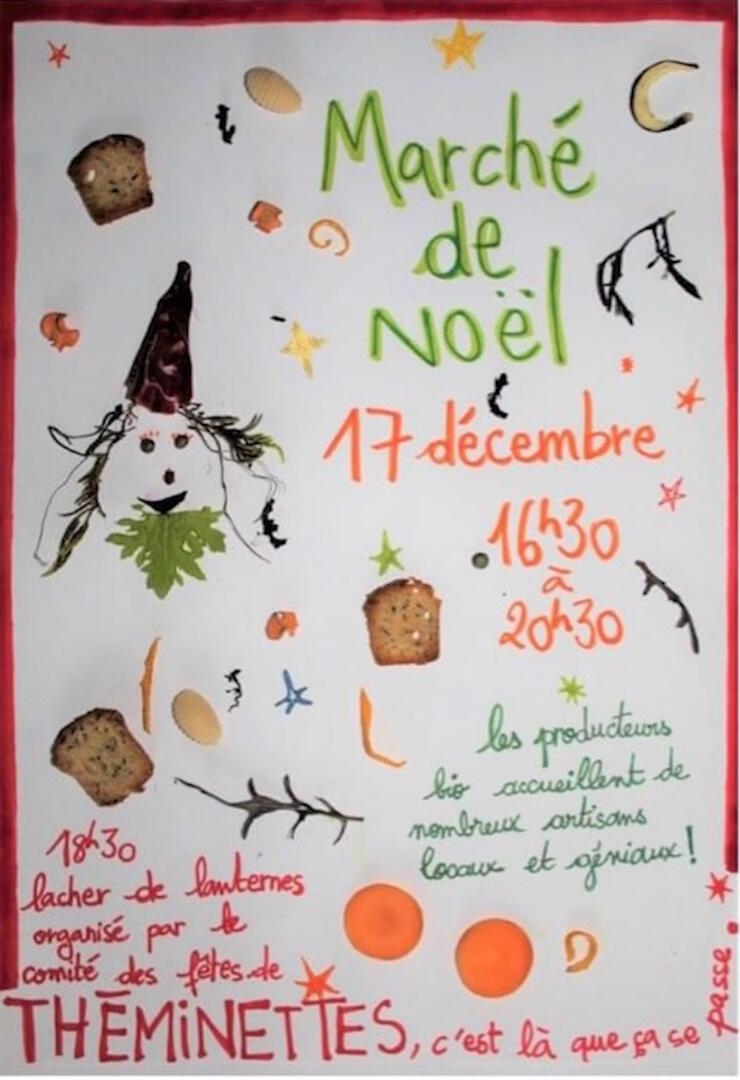 Marché
de
Noël
17 décembre
16h30
à
20h30
les producteurs
bio accueillent de
nombreux artisans
locaux et géniaux!
18h30
lacher de lanternes
organisé par le
comité des fêtes de
THÉMINETTES, c'est là que ça se passe.